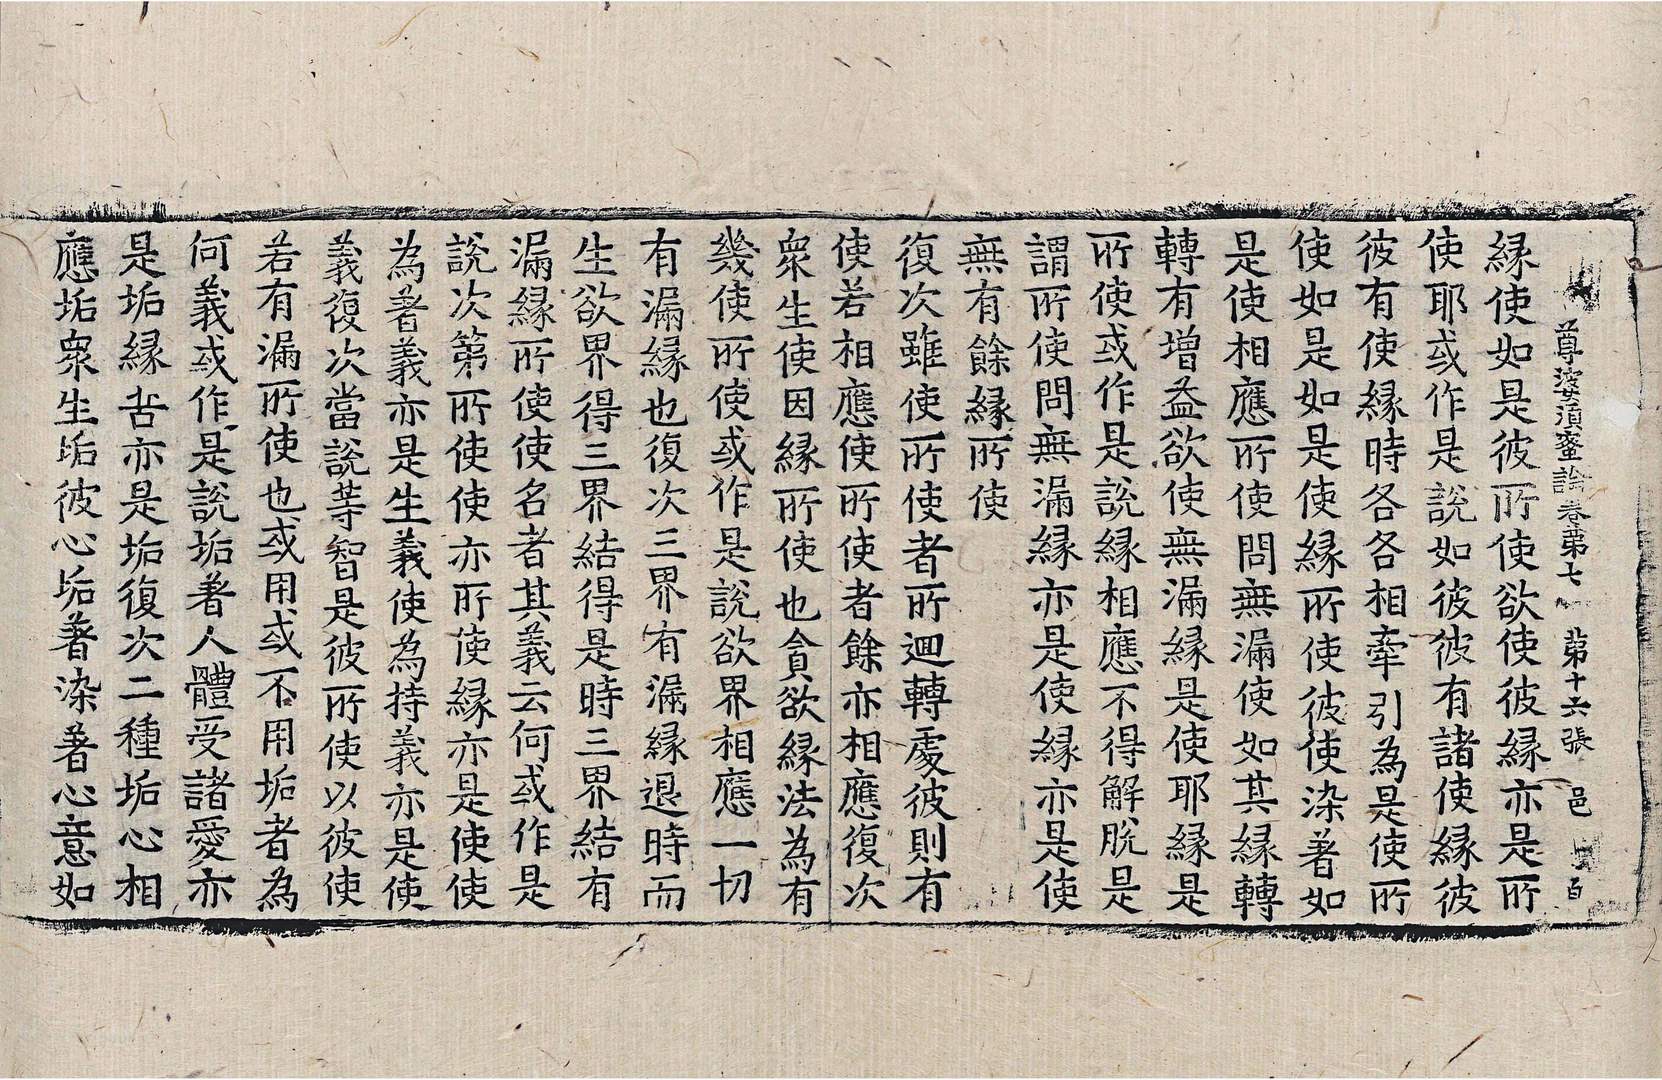 尊婆須蜜論卷第七 第十六張 邑
緣使如是彼所使欲使彼緣亦是所
使耶或作是說如彼彼有諸使緣彼
彼有使緣時各各相牽引為是使所
使如是如是使緣所使彼使染著如
是使相應所使問無漏使如其緣轉
轉有增益欲使無漏緣是使耶緣是
所使或作是說緣相應不得解脫是
謂所使問無漏緣亦是使緣亦是使
無有餘緣所使
復次雖使所使者所迴轉處彼則有
使若相應使所使者餘亦相應復次
眾生使因緣所使也貪欲緣法為有
幾使所使或作是說欲界相應一切
有漏緣也復次三界有漏緣退時而
生欲界得三界結得是時三界結有
漏緣所使使名者其義云何或作是
說次第所使使亦所使緣亦是使使
為著義亦是生義使為持義亦是使
義復次當說等智是彼所使以彼使
若有漏所使也或用或不用垢者為
何義或作是說垢著人體受諸愛亦
是垢緣苦亦是垢復次二種垢心相
應垢眾生垢彼心垢著染著心意如